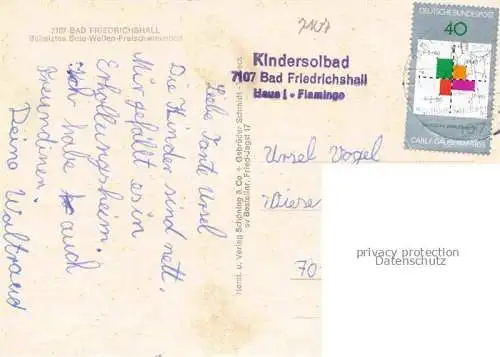 7107 BAD FRIEDRICHSHALL
Beheiztes Sole-Wellen-Freischwimmbad
Liebe Tante Ursel
Die Kinder sind nett.
Mir gefällt es in
Erhollungsheim.
Ich habe auch
Freundinen.
Deine Waltraud
Herst. u. Verlag Schöning & Co + Gebrüder Schmidt
sv Bestellnr. Fried-Jagst 17
7107
Kindersolbad
7107 Bad Friedrichshall
Haus I - Flamingo
DEUTSCHE BUNDESPOST
40
CARL F. GAUSS
Ursel Vogel
70
privacy protection
Datenschutz